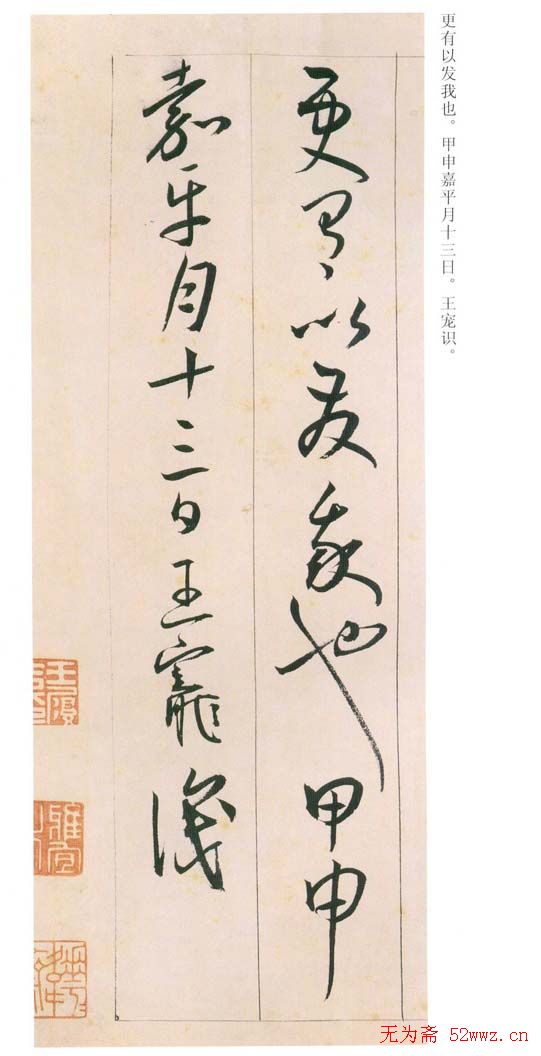 更有以发我也。甲申嘉平月十三日。王宠识。
更有以發我也甲申
嘉平月十三日王寵識
无为斋 52wwz.cn